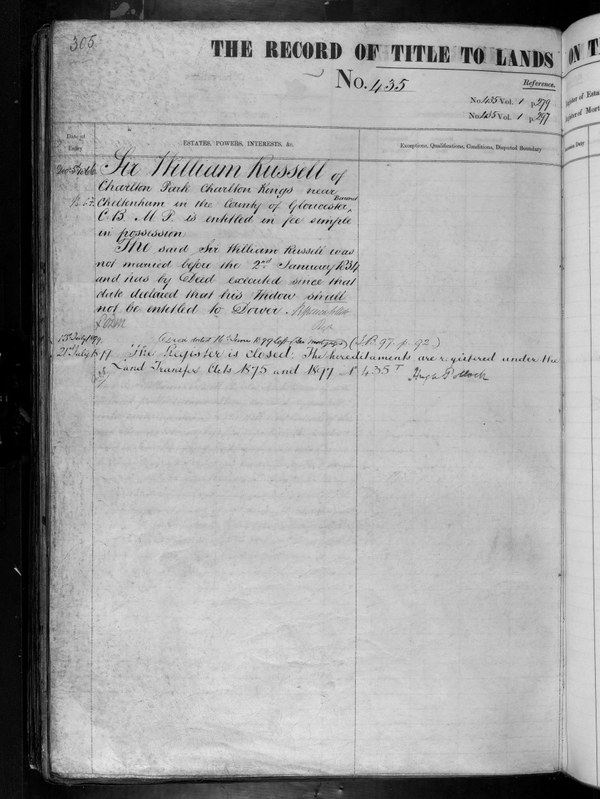 305
THE RECORD OF TITLE TO LANDS
No. 435
Reference.
No. 435 Vol. 1 p. 279
No. 435 Vol. 1 p. 297
Date of Entry
ESTATES, POWERS, INTERESTS, &c.
Exceptions, Qualifications, Conditions, Disputed Boundary
Sir William Russell of
Charlton Park Charlton Kings near
Cheltenham in the County of Gloucester, Baronet
C B M.P. is entitled in fee simple
in possession
The said Sir William Russell was
not married before the 2nd January 1834
and has by Deed executed since that
date declared that his Widow shall
not be entitled to Dower.
July 1899
21st July 1899 The Register is closed. The hereditaments are registered under the
Land Transfer Acts 1875 and 1897 435
Hugh Pollock
ON T
Register of Esta
Register of Mort